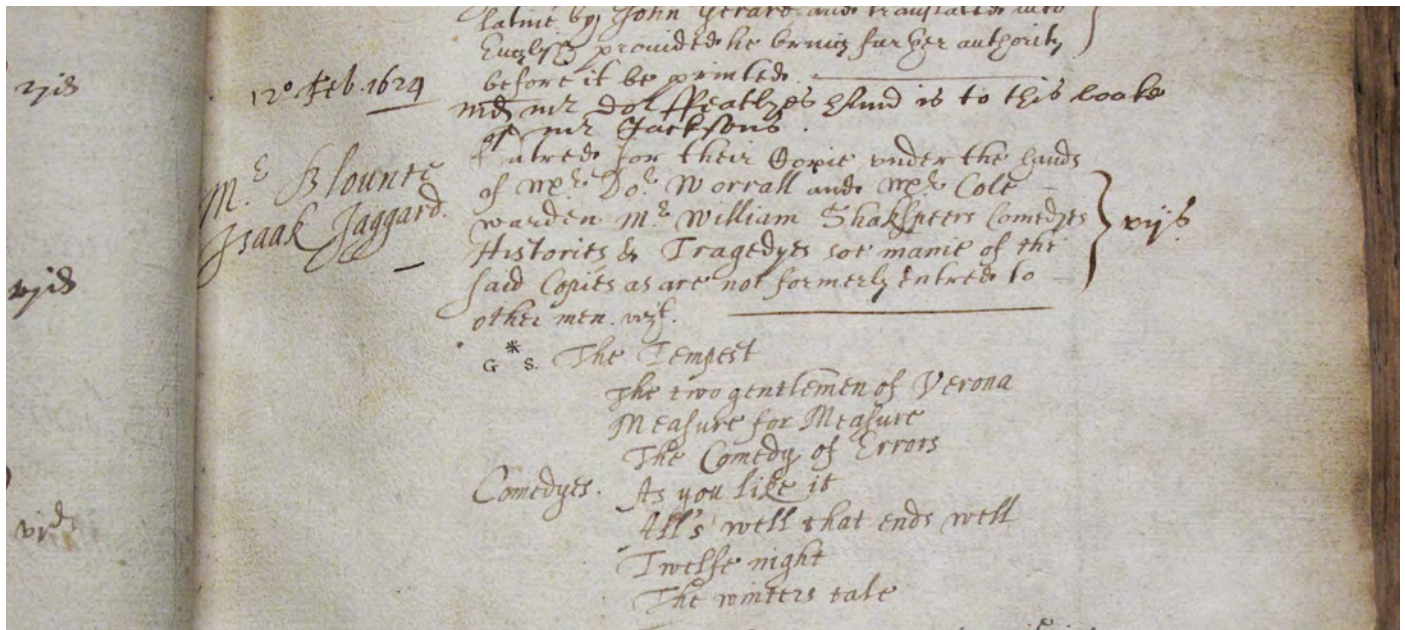 latine by John Gerard and translated into
English provided he bring further authority
before it be printed.
12° Feb. 1624
md mr Doc͛ ffeatlyes hand is to this booke
of mr Jacksons.
Mr. Blounte
Isaak Jaggard.
Entred for their Copie vnder the hands
of Mr. Do. Worrall and Mr. Cole
warden Mr. William Shakspeers Comedyes
Histories & Tragedyes soe manie of the
said Copies as are not formerly entred to
other men. vizt.
vijs
G * S. The Tempest
The two gentlemen of Verona
Measure for Measure
The Comedy of Errors
Comedyes. As you like it
All's well that ends well
Twelfe night
The winters tale
vjd
vjd
vjd